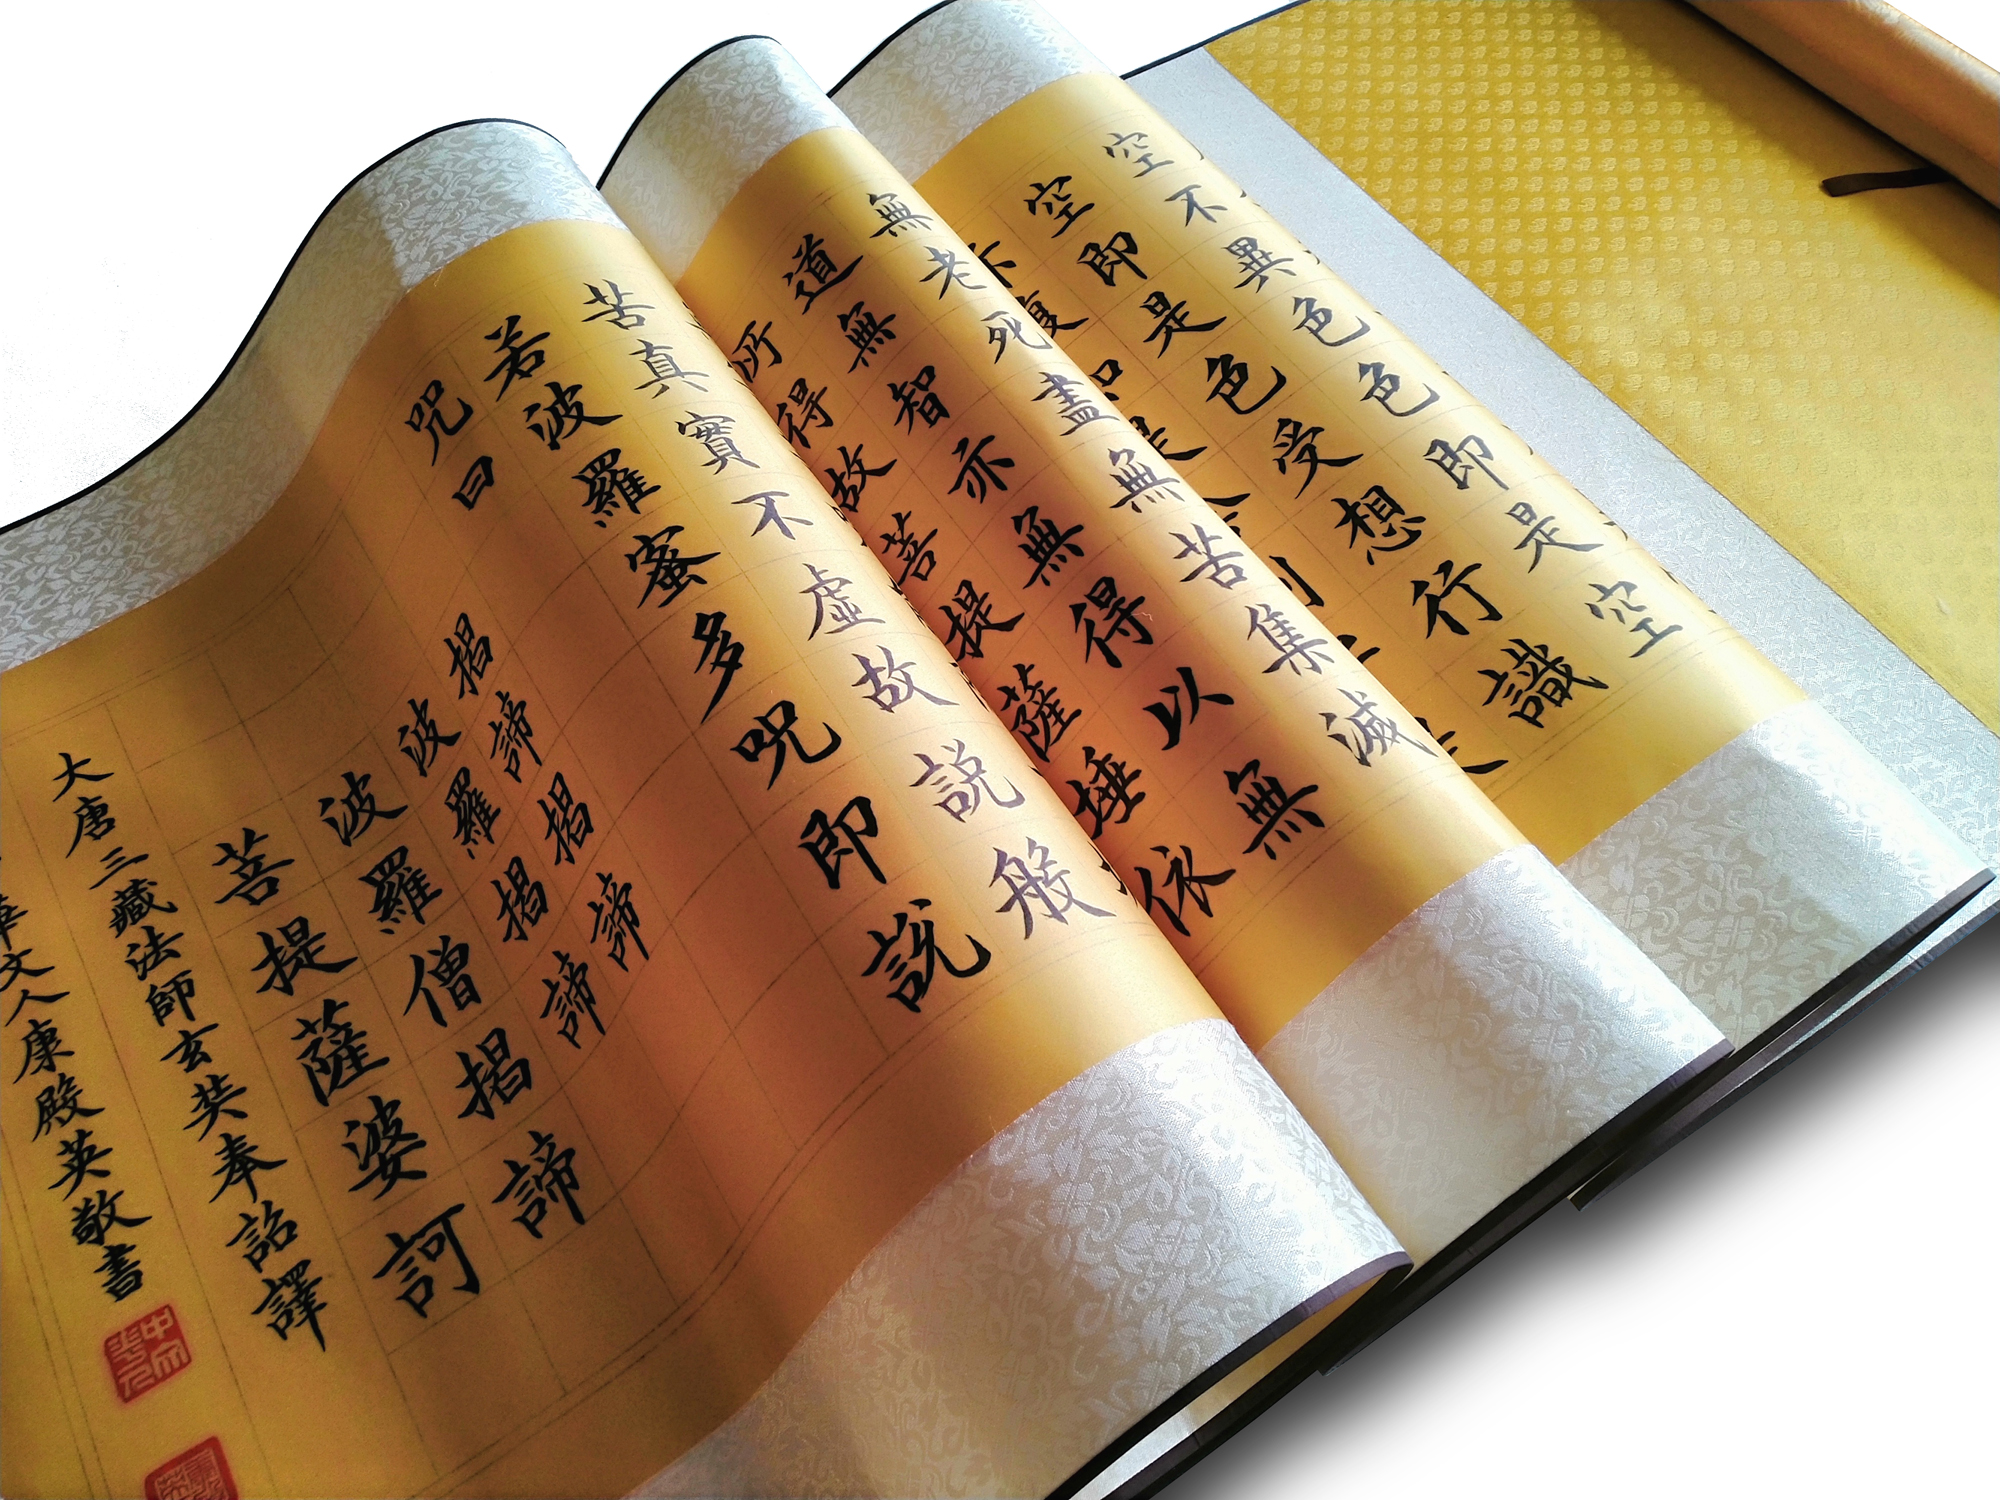 空不異色色即是空
空即是色受想行識
亦復如是
無老死盡無苦集滅
道無智亦無得以無
所得故菩提薩埵依
苦真實不虛故説般
若波羅蜜多咒即説
咒曰
揭諦揭諦
波羅揭諦
波羅僧揭諦
菩提薩婆訶
大唐三藏法師玄奘奉詔譯
華文人康殿英敬書